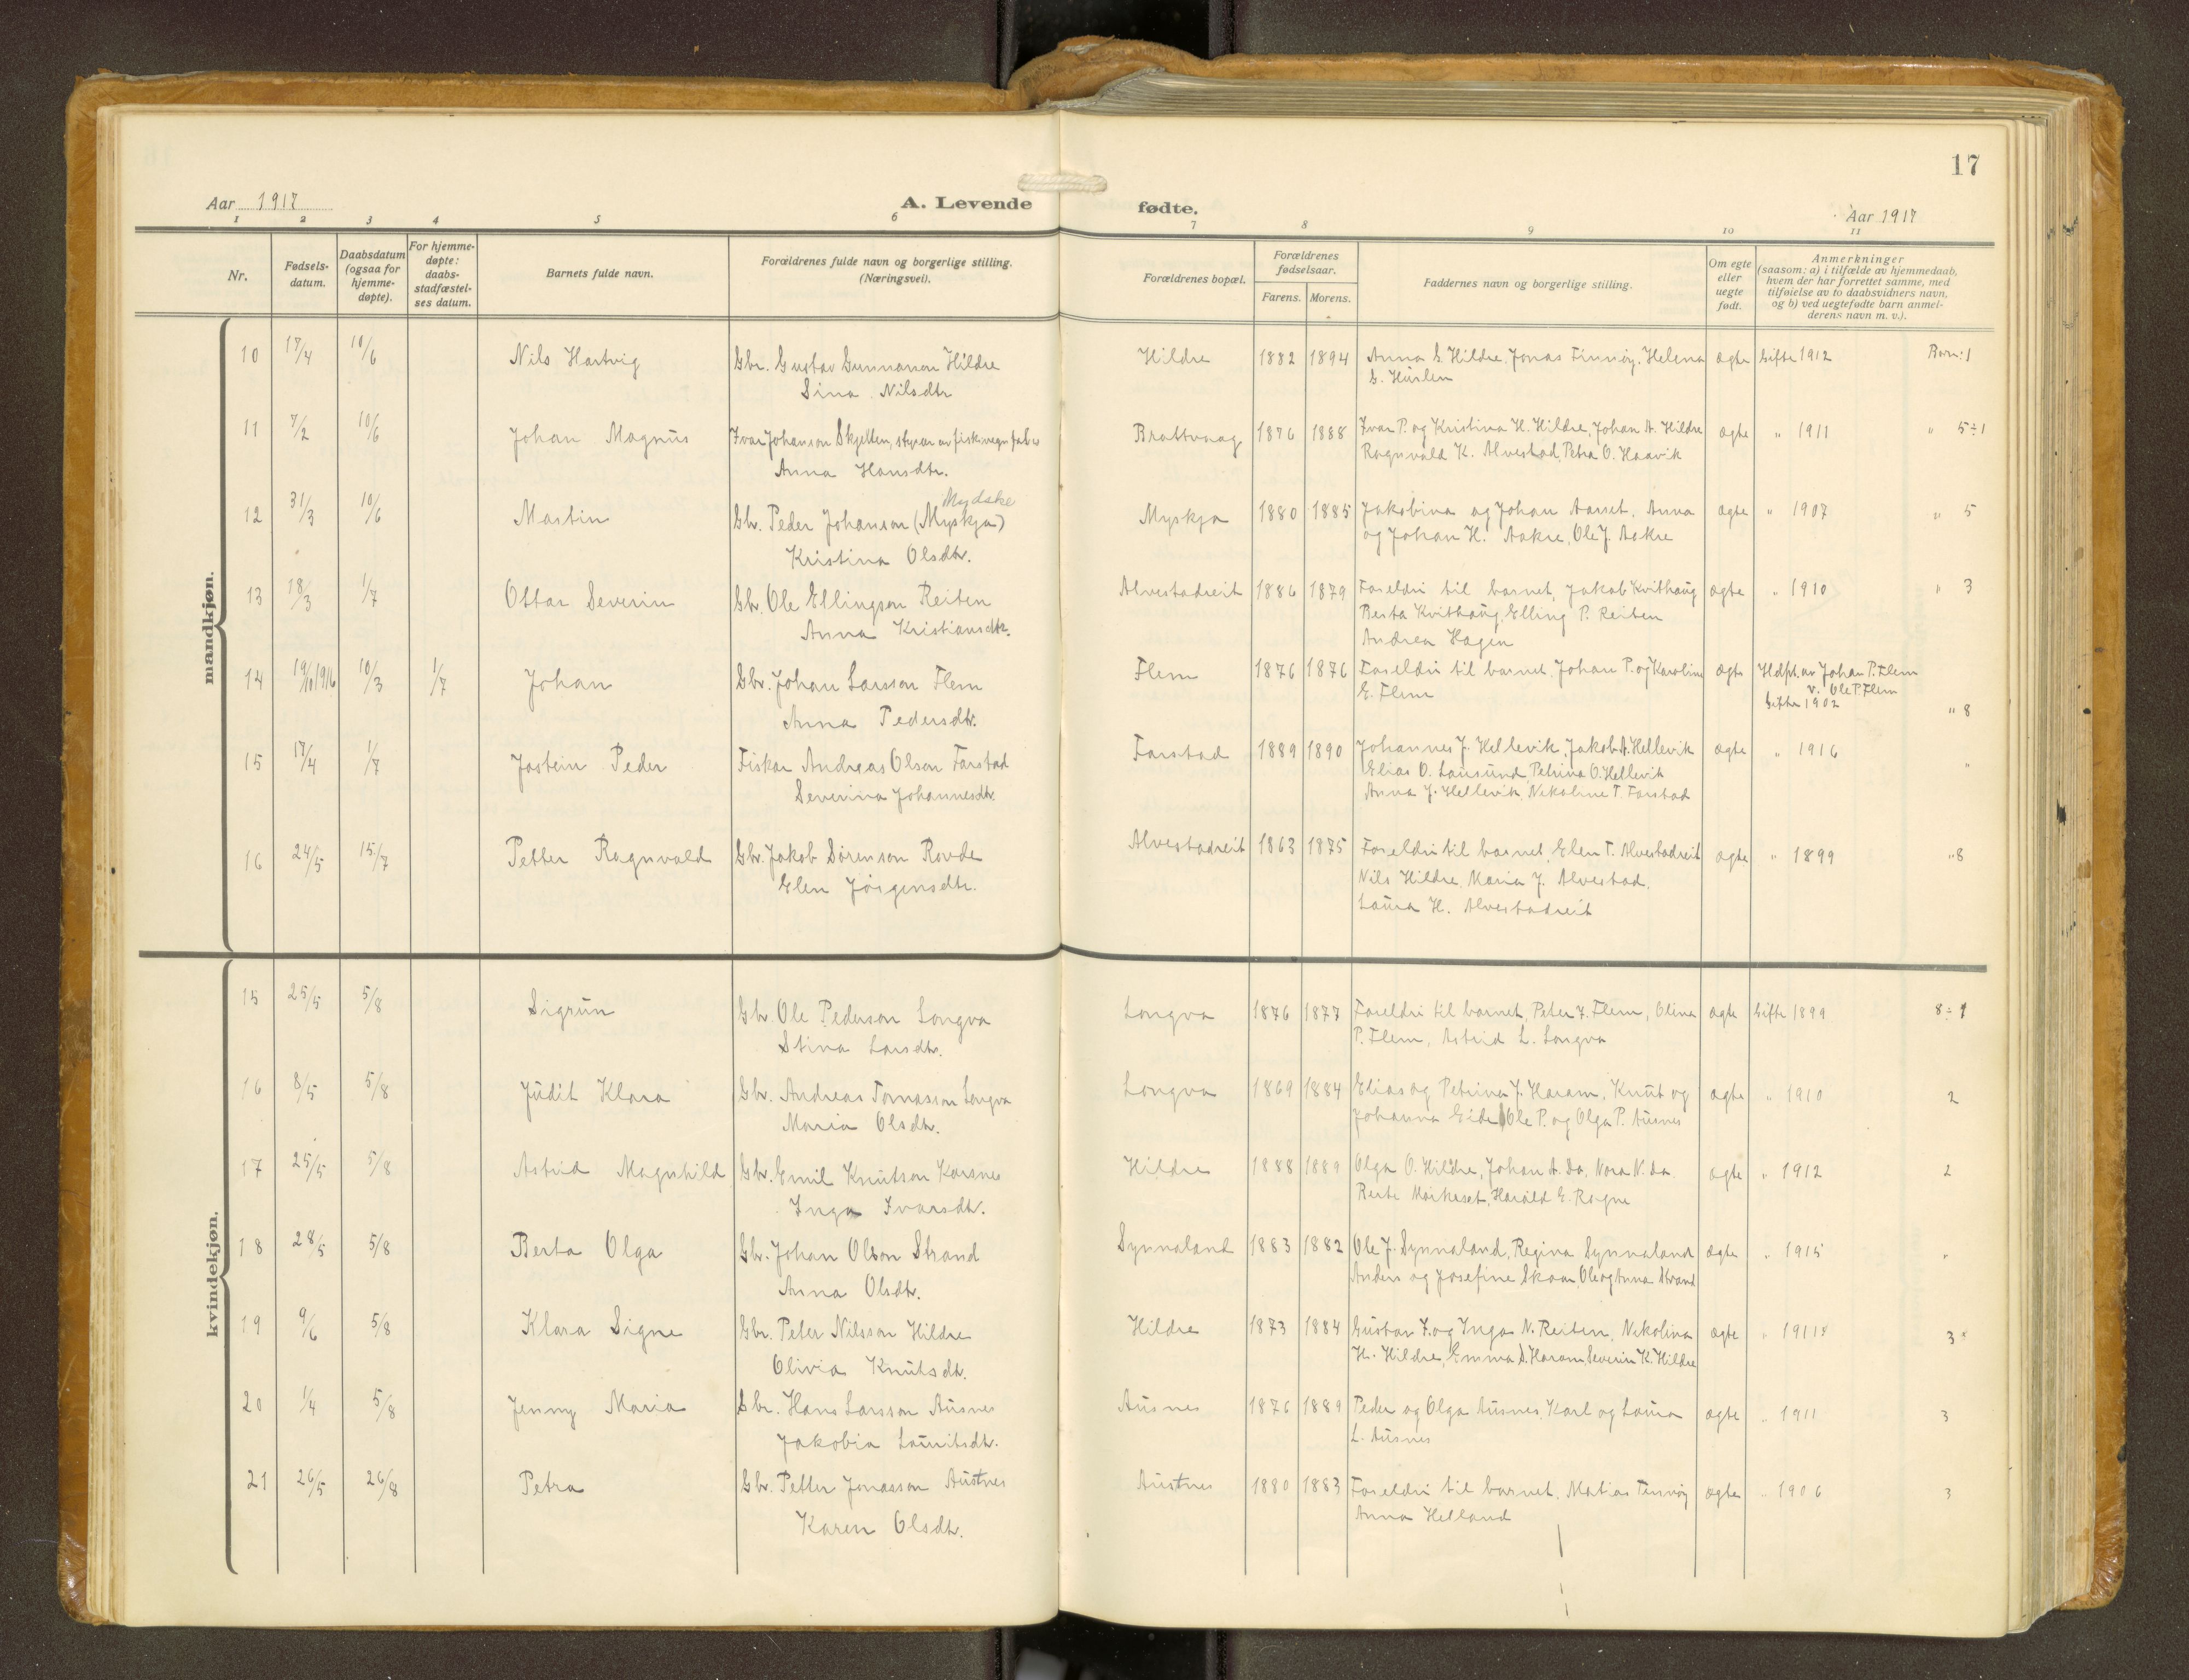 17
Aar 1917
A. Levende fødte.
Aar 1917
1 2 3 4 5 6 7 8 9 10 11
Nr.
Fødsels-
datum.
Daabsdatum
(ogsaa for
hjemme-
døpte).
For hjemme-
døpte:
daabs-
stadfæstel-
ses datum.
Barnets fulde navn.
Forældrenes fulde navn og borgerlige stilling.
(Næringsvei).
Forældrenes bopæl.
Forældrenes
fødselsaar.
Farens. Morens.
Faddernes navn og borgerlige stilling.
Om egte
eller
uegte
født.
Anmerkninger
(saasom: a) i tilfælde av hjemmedaab,
hvem der har forrettet samme, med
tilføielse av to daabsvidners navn,
og b) ved uegtefødte barn anmel-
derens navn m. v.).
mandkjøn.
10 17/4 10/6 Nils Hartvig Gbr. Gustav Gunnarson Hildre Hildre 1882 1894 Anna G. Hildre, Jonas Finnøy, Helena ægte Gifte 1912 Born: 1
Sina Nilsdtr G. Huslen
11 7/2 10/6 Johan Magnus Ivar Johanson Skjelten, styrar av fiskevegnfab. Brattvaag 1876 1888 Ivar P. og Kristina H. Hildre, Johan A. Hildre ægte " 1911 " 5÷1
Anna Hansdtr. Ragnvald K. Alvestad, Petra O. Haavik
Mydske
12 31/3 10/6 Martin Gbr. Peder Johanson (Myskja) Myskja 1880 1885 Jakobina og Johan Aasset, Anna ægte " 1907 " 5
Kristina Olsdtr. og Johan H. Aakre, Ole J. Aakre
13 18/3 1/7 Ottar Severin Gbr. Ole Ellingson Reiten Alvestadreit 1886 1879 Foreldri til barnet, Jakob Kvithaug ægte " 1910 " 3
Anna Kristiansdtr. Berta Kvithaug, Elling P. Reiten
Andrea Hagen
14 19/10 1916 10/3 1/7 Johan Gbr. Johan Larsson Flem Flem 1876 1876 Foreldri til barnet, Johan P. og Karoline ægte Hdpt. av Johan P. Flem
Anna Pedersdtr. E. Flem v. Ole P. Flem
Gifte 1902 " 8
15 17/4 1/7 Jostein Peder Fiskar Andreas Olson Farstad Farstad 1889 1890 Johannes J. Hellevik, Jakob A. Hellevik ægte " 1916 "
Severina Johannesdtr. Elias O. Lausund, Petrina O. Hellevik
Anna J. Hellevik, Nikoline T. Farstad
16 24/5 15/7 Petter Ragnvald Gbr. Jakob Sørenson Rovde Alvestadreit 1863 1875 Foreldri til barnet, Elen T. Alvestadreit ægte " 1899 " 8
Elen Jørgensdtr. Nils Hildre, Maria J. Alvestad,
Laura H. Alvestadreit
kvindekjøn.
15 25/5 5/8 Sigrun Gbr. Ole Pederson Longva Longva 1876 1877 Foreldri til barnet, Peter J. Flem, Olina ægte Gifte 1899 8÷1
Stina Larsdtr. P. Flem, Astrid L. Longva
16 8/5 5/8 Judit Klara Gbr. Andreas Tomasson Longva Longva 1869 1884 Elias og Petrina J. Haram, Knut og ægte " 1910 2
Maria Olsdtr. Johanna Eide, Ole P. og Olga P. Ausnes
17 25/5 5/8 Astrid Magnhild Gbr. Emil Knutson Karsnes Hildre 1888 1889 Olga O. Hildre, Johan A. do, Nora N. do. ægte " 1912 2
Inga Ivarsdtr. Berte Morkeset, Harald E. Rogne
18 28/5 5/8 Berta Olga Gbr. Johan Olson Strand Synnaland 1883 1882 Ole J. Synnaland, Regina Synnaland ægte " 1915 "
Anna Olsdtr. Anders og Josefine Skaar, Ole og Anna Strand
19 9/6 5/8 Klara Signe Gbr. Peter Nilsson Hildre Hildre 1873 1884 Gustav J. og Inga N. Reiten, Nikolina ægte " 1911 3
Olivia Knutsdtr. H. Hildre, Emma S. Haram, Severin K. Hildre
20 1/4 5/8 Jenny Maria Gbr. Hans Larsson Ausnes Ausnes 1876 1889 Peder og Olga Ausnes, Karl og Laura ægte " 1911 3
Jakobia Lauritsdtr. L. Ausnes
21 26/5 26/8 Petra Gbr. Petter Jonasson Austnes Austnes 1880 1883 Foreldri til barnet, Matias Finnøy ægte " 1906 3
Karen Olsdtr. Anna Helland